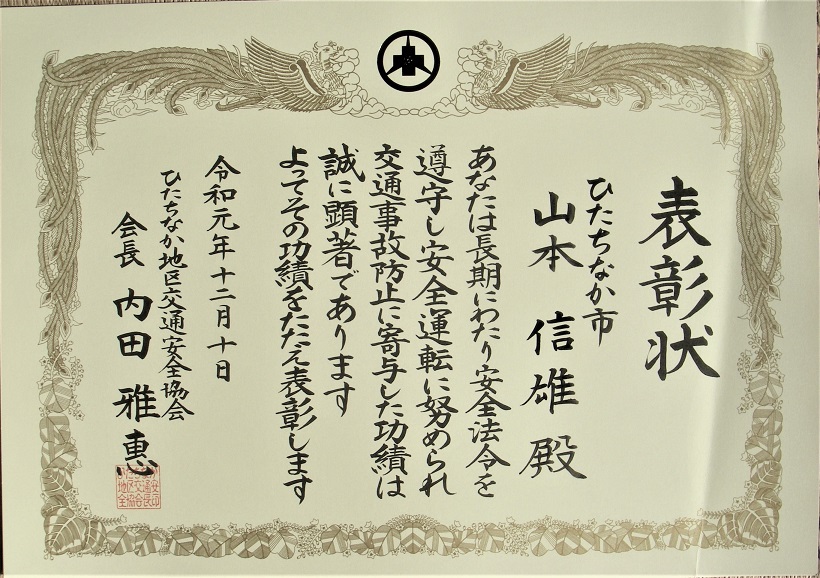 表彰状
ひたちなか市
山本 信雄 殿
あなたは長期にわたり安全法令を
遵守し安全運転に努められ
交通事故防止に寄与した功績は
誠に顕著であります
よってその功績をたたえ表彰します
令和元年十二月十日
ひたちなか地区交通安全協会
会長 内田 雅惠